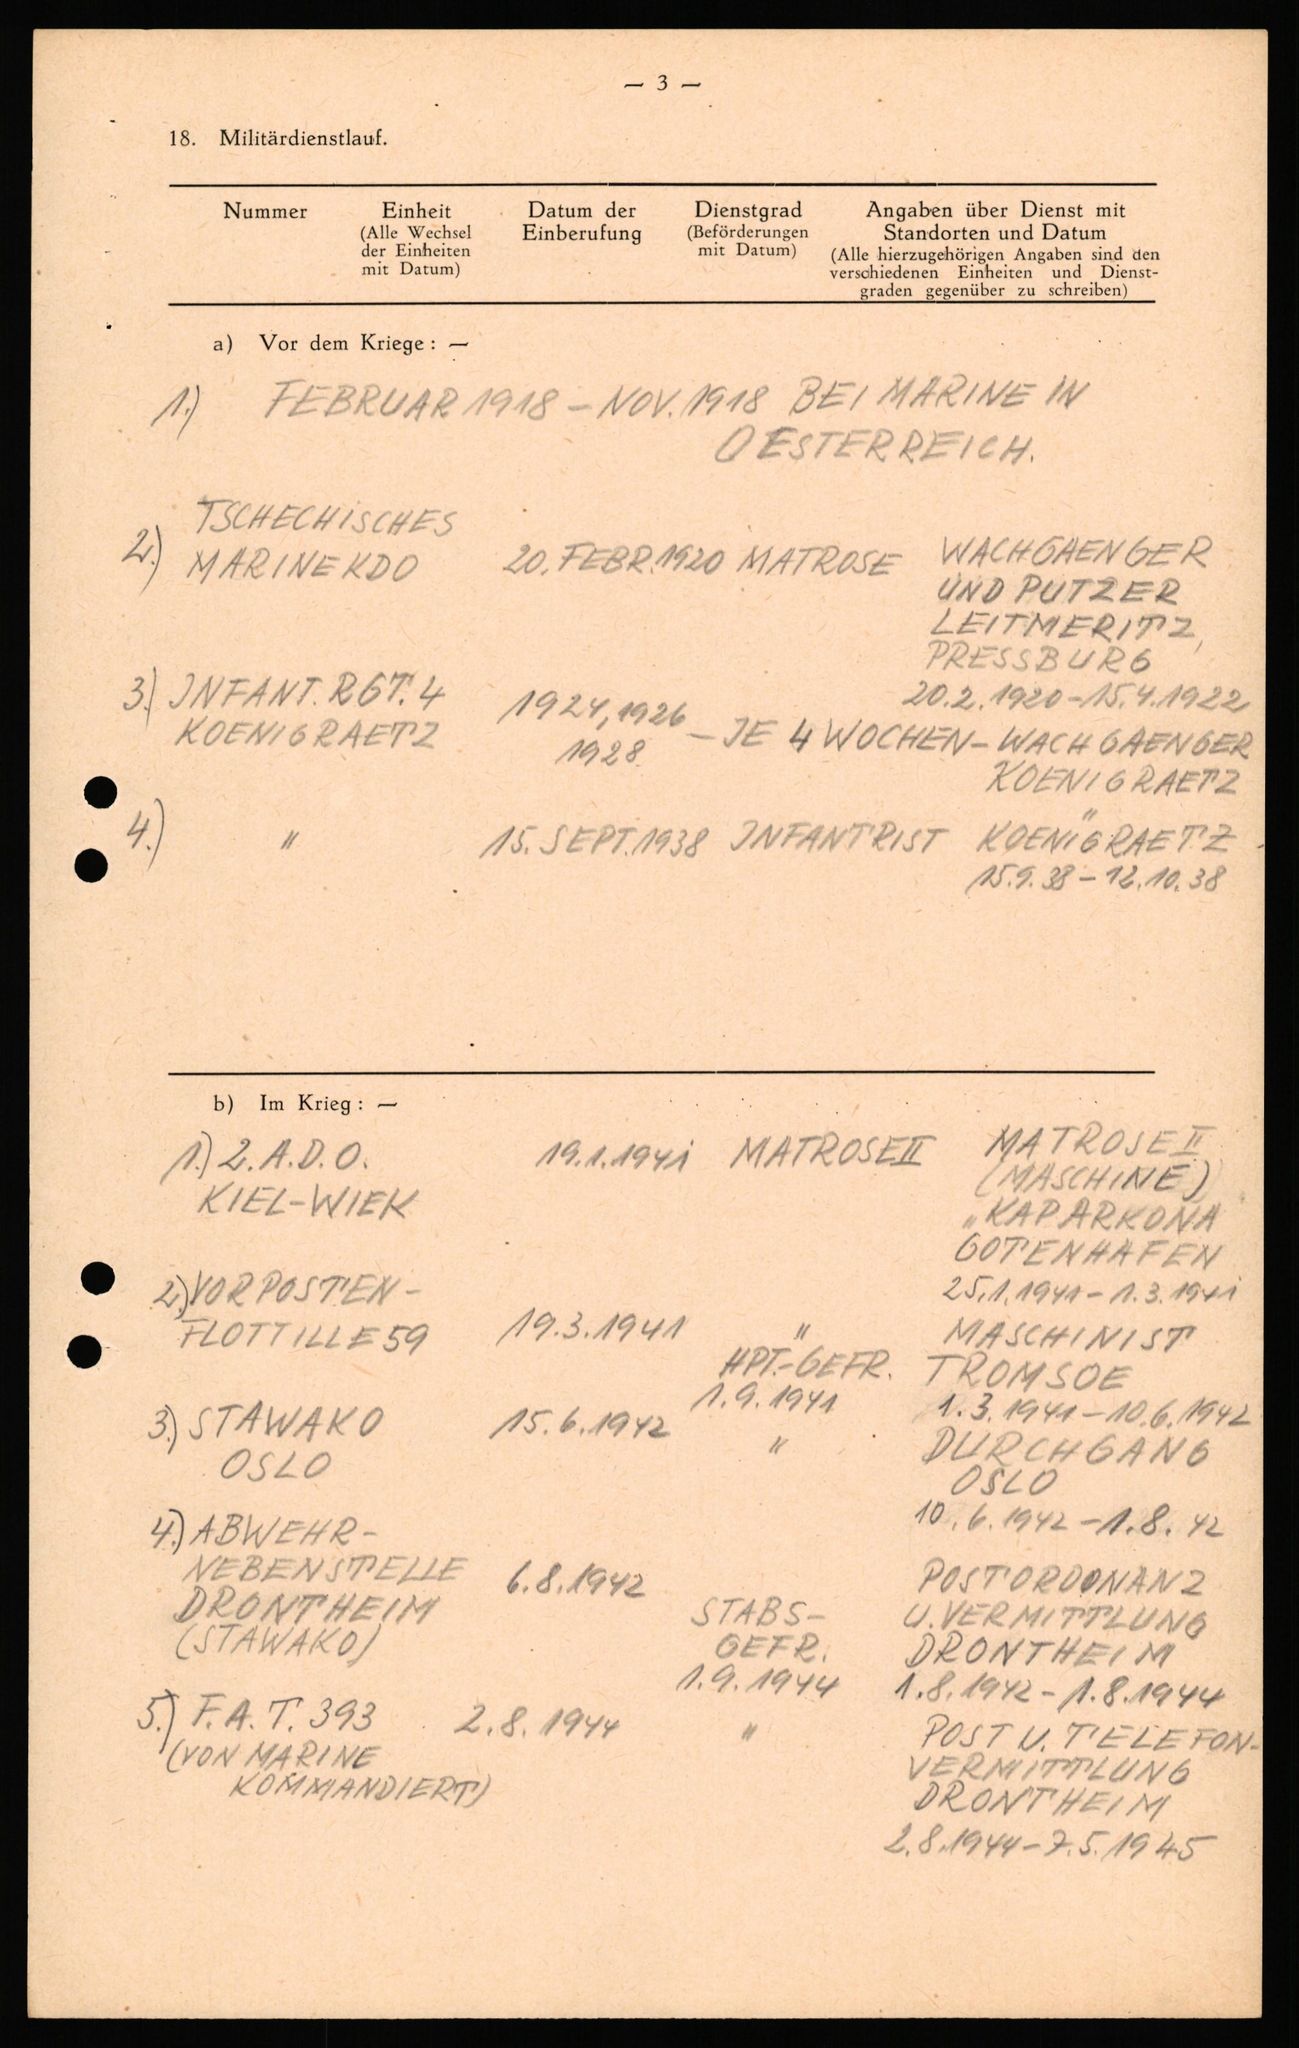 — 3 —
18. Militärdienstlauf.
Nummer
Einheit
(Alle Wechsel
der Einheiten
mit Datum)
Datum der
Einberufung
Dienstgrad
(Beförderungen
mit Datum)
Angaben über Dienst mit
Standorten und Datum
(Alle hierzugehörigen Angaben sind den
verschiedenen Einheiten und Dienst-
graden gegenüber zu schreiben)
a) Vor dem Kriege: —
1.) FEBRUAR 1918 – NOV. 1918 BEI MARINE IN
OESTERREICH.
2.) TSCHECHISCHES
MARINEKDO
20. FEBR. 1920 MATROSE
WACHGAENGER
UND PUTZER
LEITMERITZ,
PRESSBURG
20.2.1920–15.4.1922
3.) INFANT. RGT. 4
KOENIGRAETZ
1924, 1926
1928
– JE 4 WOCHEN – WACHGAENGER
KOENIGRAETZ
4.) " 15. SEPT. 1938 INFANTRIST
"
KOENIGRAETZ
15.9.38 – 12.10.38
b) Im Krieg: —
1.) 2. A. D. O.
KIEL-WIEK
19.1.1941 MATROSE II
MATROSE II
(MASCHINE)
„KAP ARKONA
GOTENHAFEN
25.1.1941 – 1.3.1941
2.) VORPOSTEN-
FLOTTILLE 59
19.3.1941
"
HPT.-GEFR.
1.9.1941
MASCHINIST
TROMSOE
1.3.1941 – 10.6.1942
3.) STAWAKO
OSLO
15.6.1942
"
DURCHGANG
OSLO
10.6.1942 – 1.8.42
4.) ABWEHR-
NEBENSTELLE
DRONTHEIM
(STAWAKO)
6.8.1942
STABS-
GEFR.
1.9.1944
POSTORDONANZ
U. VERMITTLUNG
DRONTHEIM
1.8.1942 – 1.8.1944
5.) F. A. T. 393
(VON MARINE
KOMMANDIERT)
2.8.1944
"
POST U. TELEFON-
VERMITTLUNG
DRONTHEIM
2.8.1944 – 7.5.1945